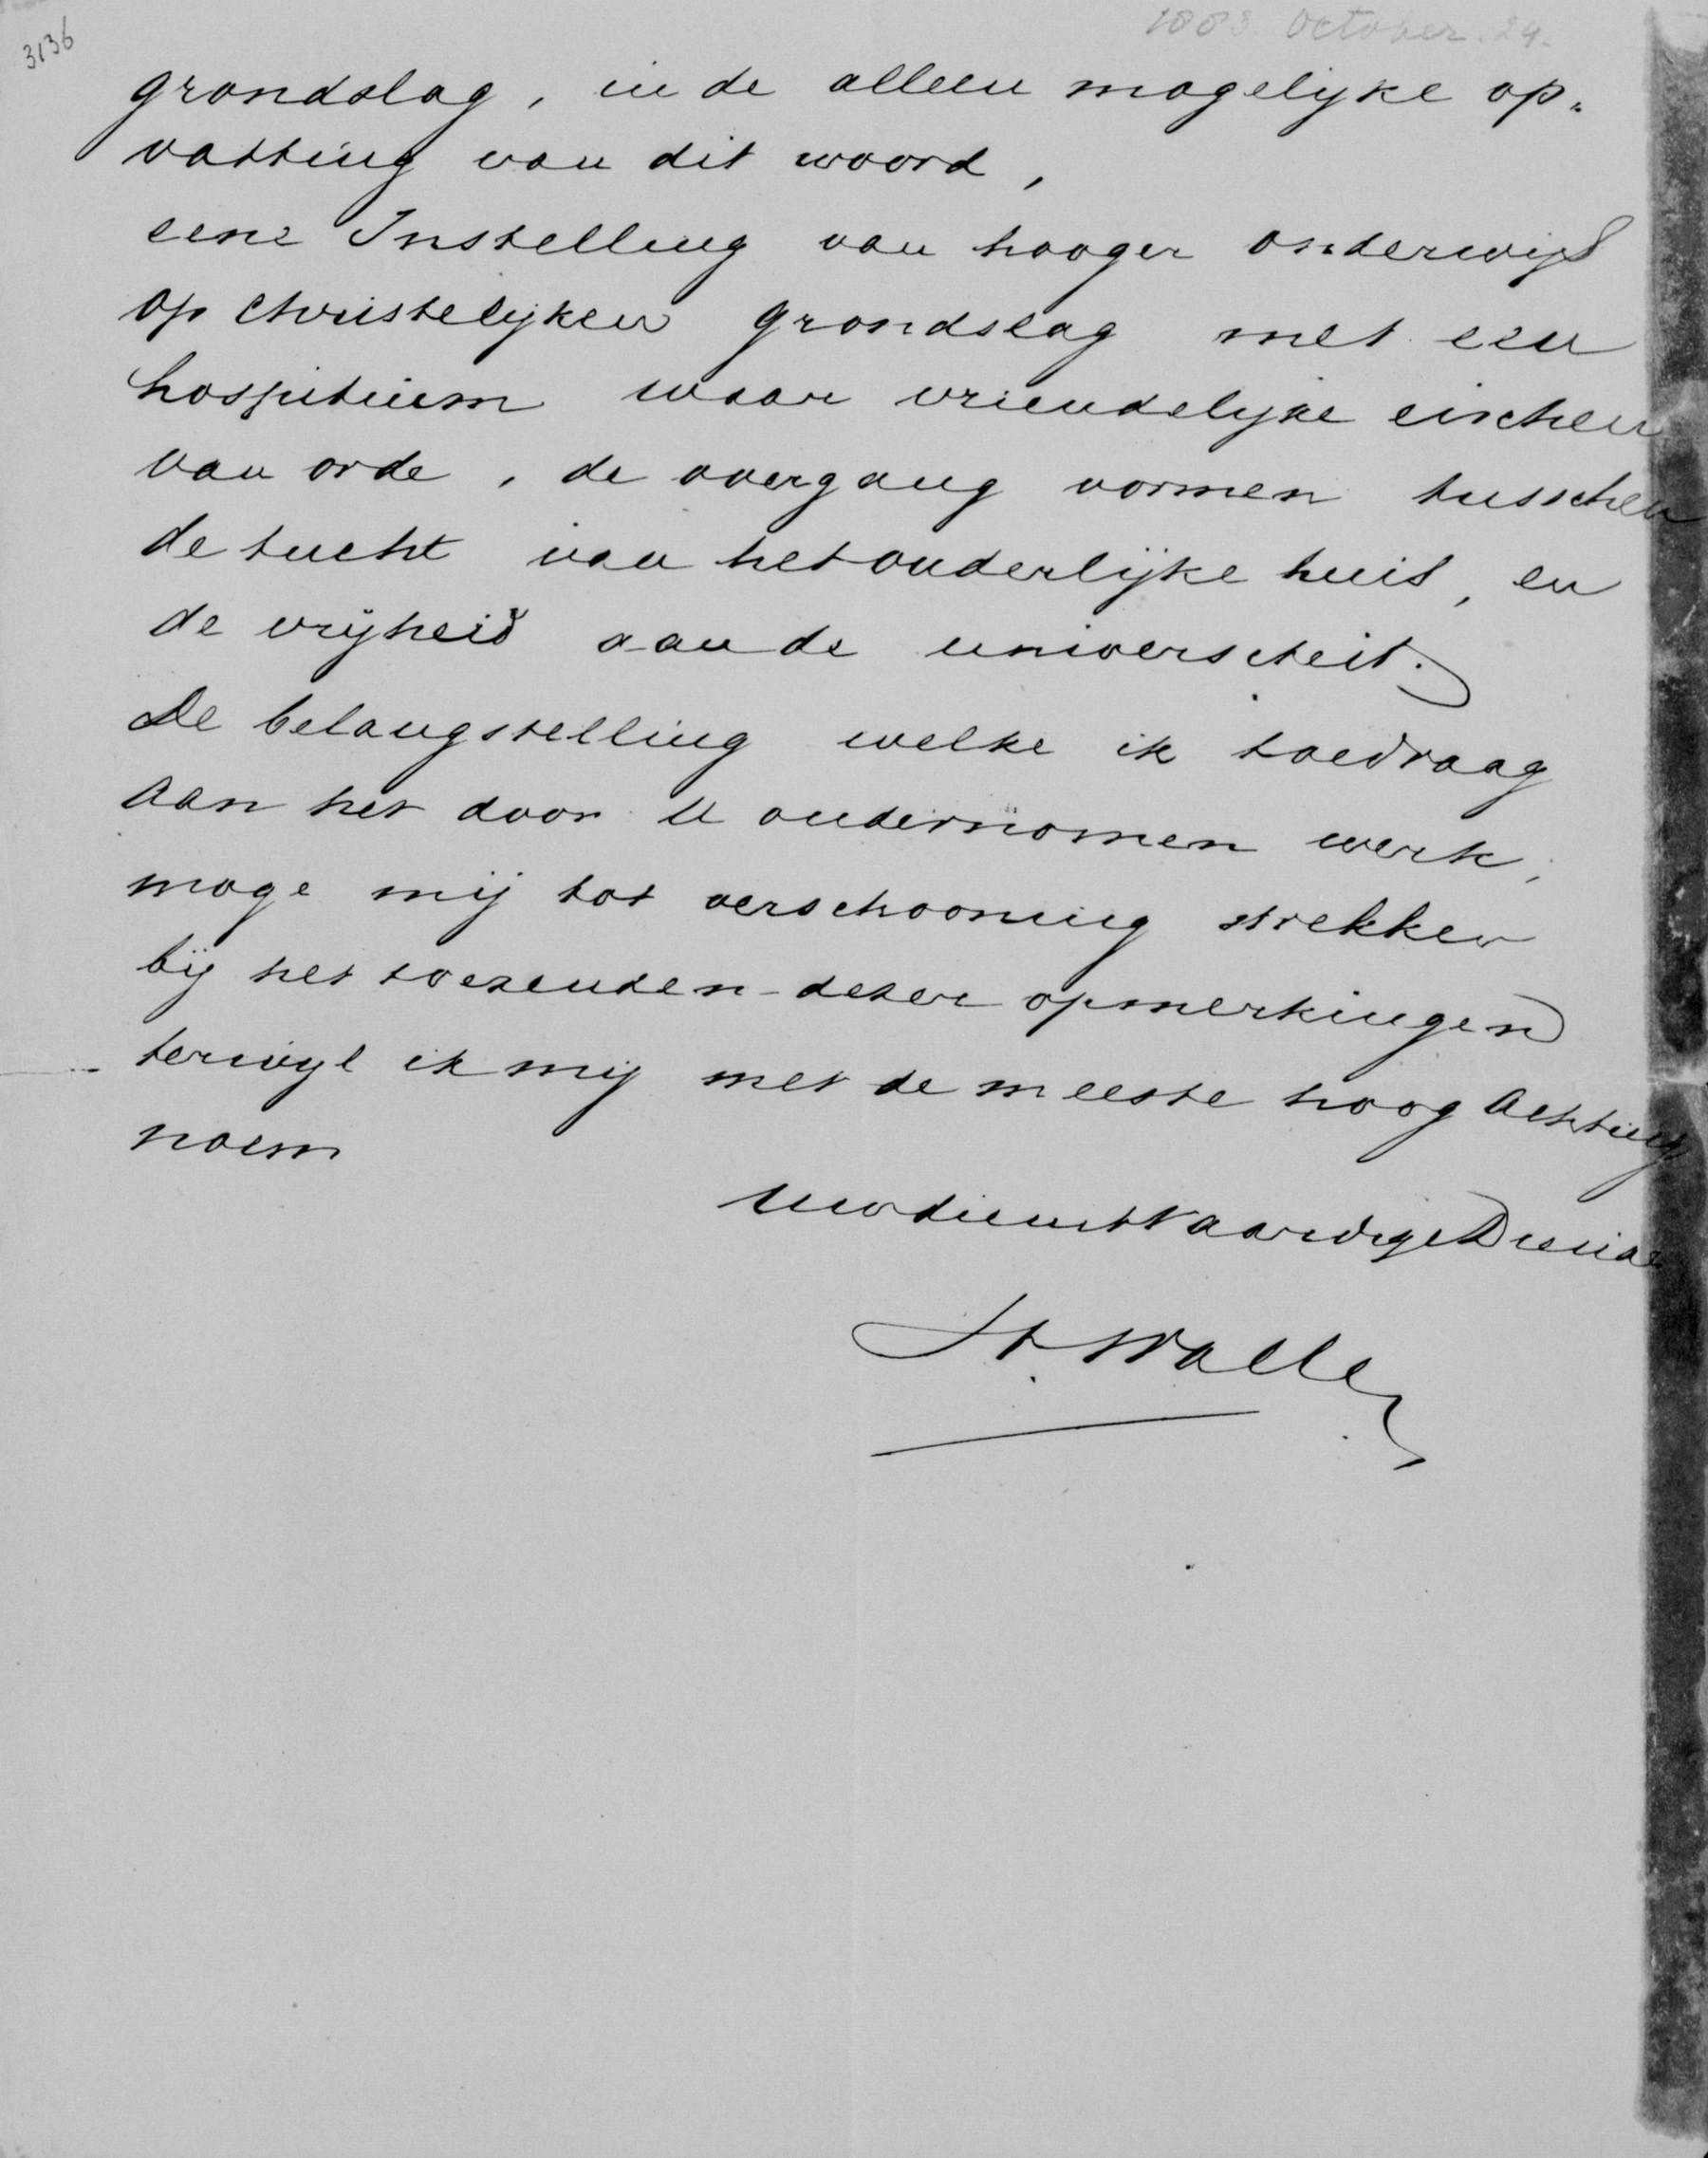 3136
1883. October. 24.
grondslag, in de alleen mogelijke op„
vatting van dit woord,
eene Instelling van hooger onderwijs
op Christelijken grondslag met een
hospitium waar vriendelijke eischen
van orde, de overgang vormen tusschen
de tucht van het ouderlijke huis, en
de vrijheid aan de universiteit.
De belangstelling welke ik toedraag
aan het door U ondernomen werk,
moge mij tot verschooning strekken
bij het toezenden dezer opmerkingen
terwijl ik mij met de meeste hoog Achting
noem
Uw dienstVaardige Dienaar
H. Waller